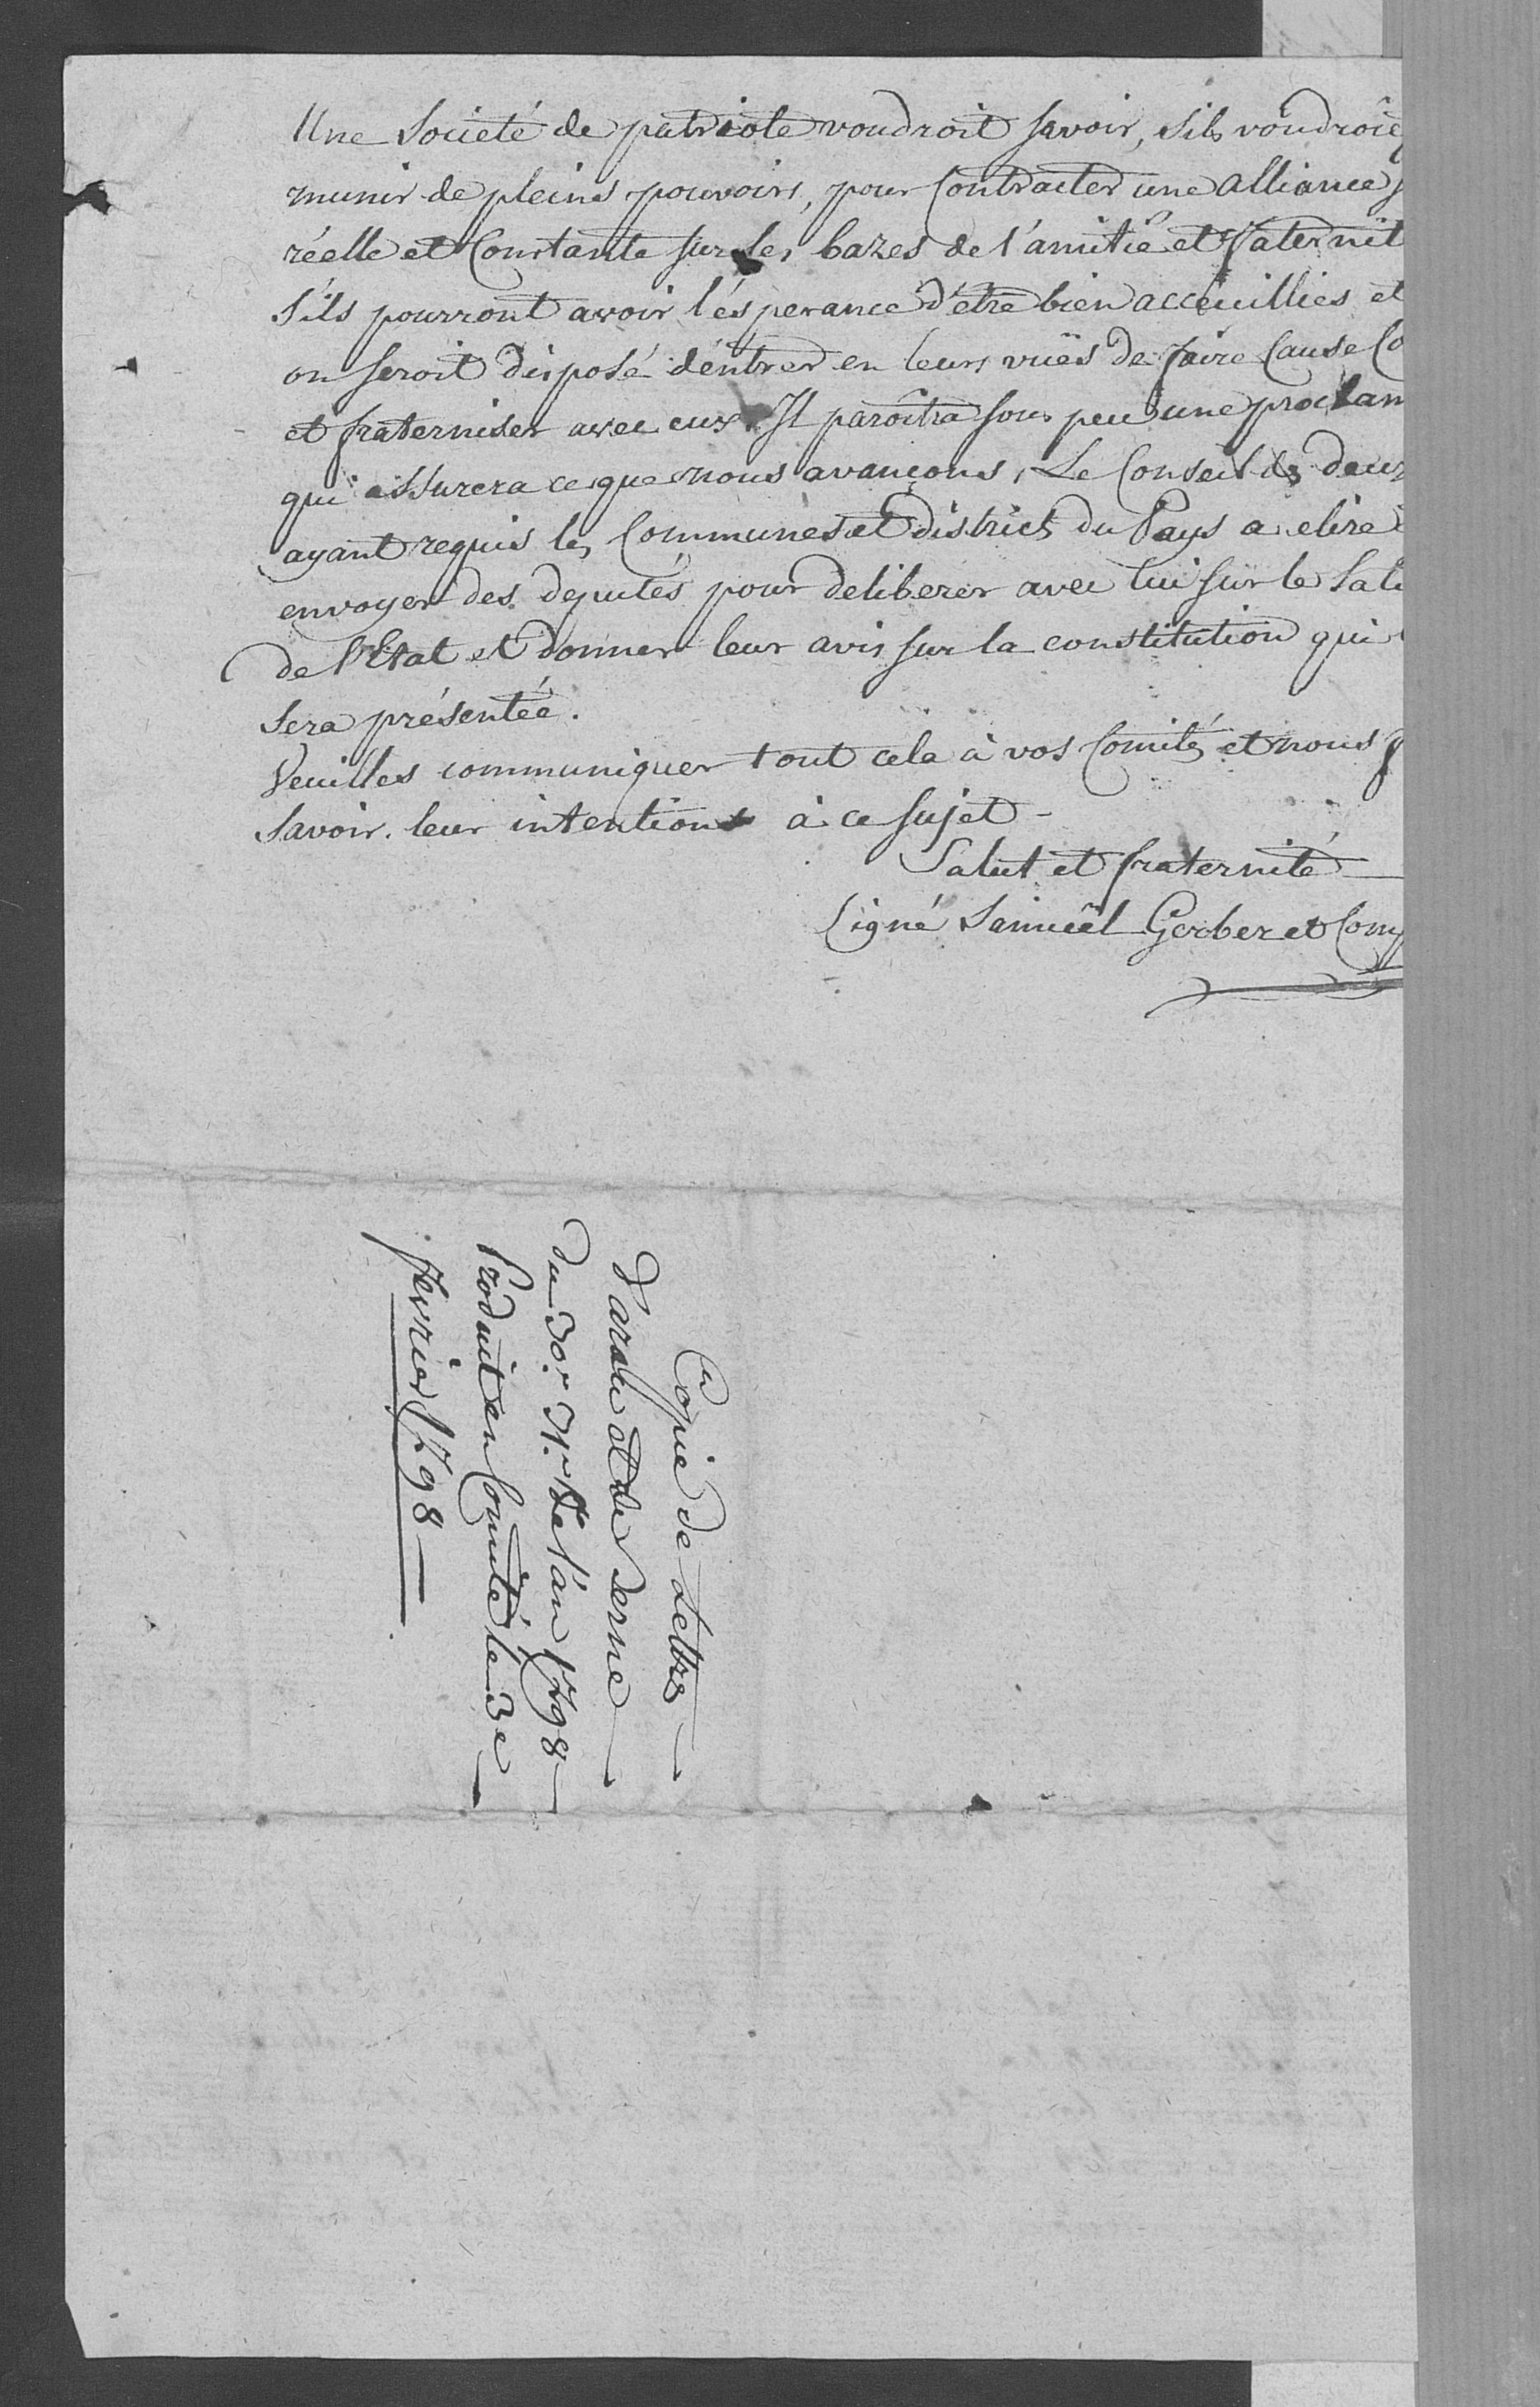 Une Societé de patriote voudroit savoir, s'ils voudroie
munir de pleins pouvoirs, pour Contracter une alliance
réelle et Constante sur les bazes de l'amitié et fraternit
s'ils pourront avoir l'ésperance d'étre bien acceuillies et
on seroit disposé d'éntrer en leurs vuës de faire Cause Co
et fraterniser avec eux. Il paroîtra sous peu une proclam
qui assurera ce que nous avançons, Le Conseil des deux
ayant requis les Communes et districts du Pays a elire
envoyer des deputés pour deliberer avec lui sur le Salu
de l'Etat et donner leur avis sur la constitution qui
sera présentée.
Veuilles communiquer tout cela à vos Comités et nous
savoir leur intentions à ce sujet -
Salut et fraternité
Signé Samuël Gerber et Comp
Copie de Lettre
d'arau et de Berne
du 30.r 31.r de l'an 1798
Produit en Comité le 3e
fevrier 1798